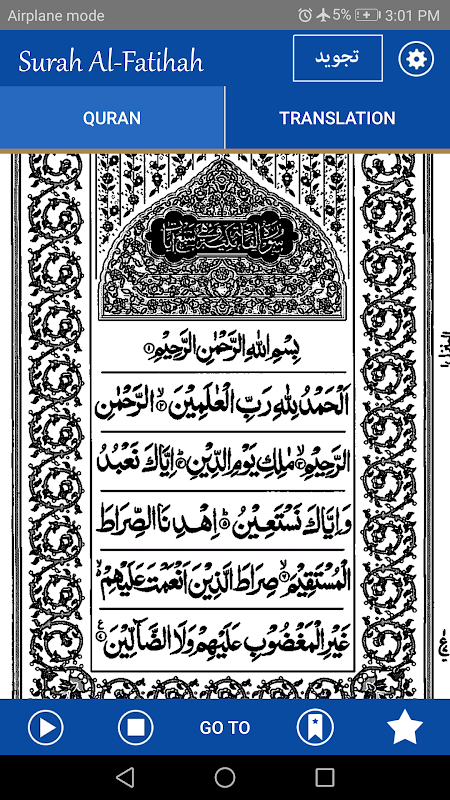 Airplane mode 5% 3:01 PM
Surah Al-Fatihah تجويد
QURAN TRANSLATION
بِسْمِ اللهِ الرَّحْمٰنِ الرَّحِيْمِ ۝۱
اَلْحَمْدُ لِلّٰهِ رَبِّ الْعٰلَمِيْنَ ۝۲ الرَّحْمٰنِ
الرَّحِيْمِ ۝۳ مٰلِكِ يَوْمِ الدِّيْنِ ۝۴ اِيَّاكَ نَعْبُدُ
وَاِيَّاكَ نَسْتَعِيْنُ ۝۵ اِهْدِنَا الصِّرَاطَ
الْمُسْتَقِيْمَ ۝۶ صِرَاطَ الَّذِيْنَ اَنْعَمْتَ عَلَيْهِمْ
غَيْرِ الْمَغْضُوْبِ عَلَيْهِمْ وَلَا الضَّآلِّيْنَ ۝۷
GO TO